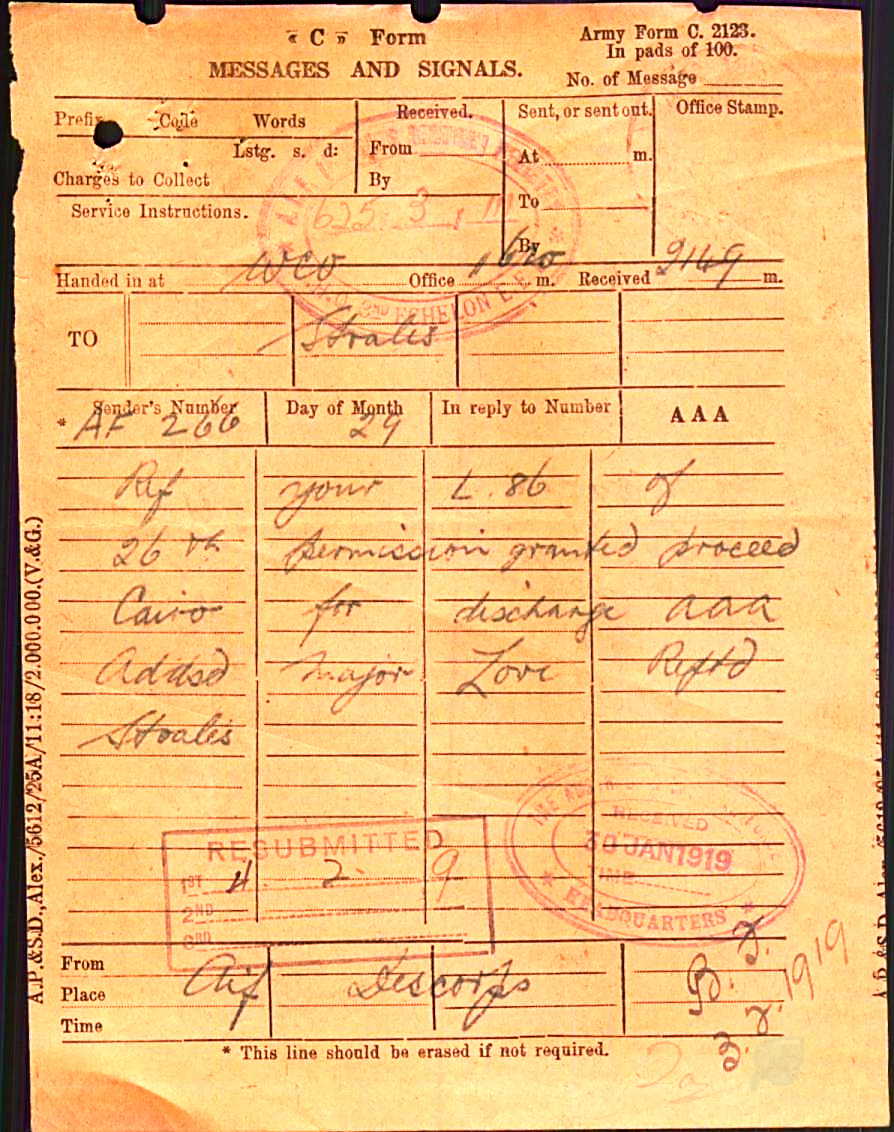 "C" Form
Army Form C. 2123.
In pads of 100.
MESSAGES AND SIGNALS.
No. of Message
Prefix Code Words
Received.
Sent, or sent out.
Office Stamp.
Lstg. s. d:
From
At m.
Charges to Collect
By
To
Service Instructions.
625. 3
By
2ND ECHELON E.E.F.
Handed in at WCO Office m. Received 2149 m.
TO
Stralis
Sender's Number
Day of Month
In reply to Number
AAA
* AF 266
29
Ref your L. 86 of
26th permission granted proceed
Cairo for discharge aaa
Addsd Major Love Reptd
Stralis
RECEIVED
30 JAN 1919
HEADQUARTERS
RESUBMITTED
1ST 4. 2. 9
2ND
3RD
From
Place
Time
Aif Descorps
B.
3.2.1919
* This line should be erased if not required.
A.P.&S.D., Alex./5612/25A/11:18/2.000.000.(V.&G.)